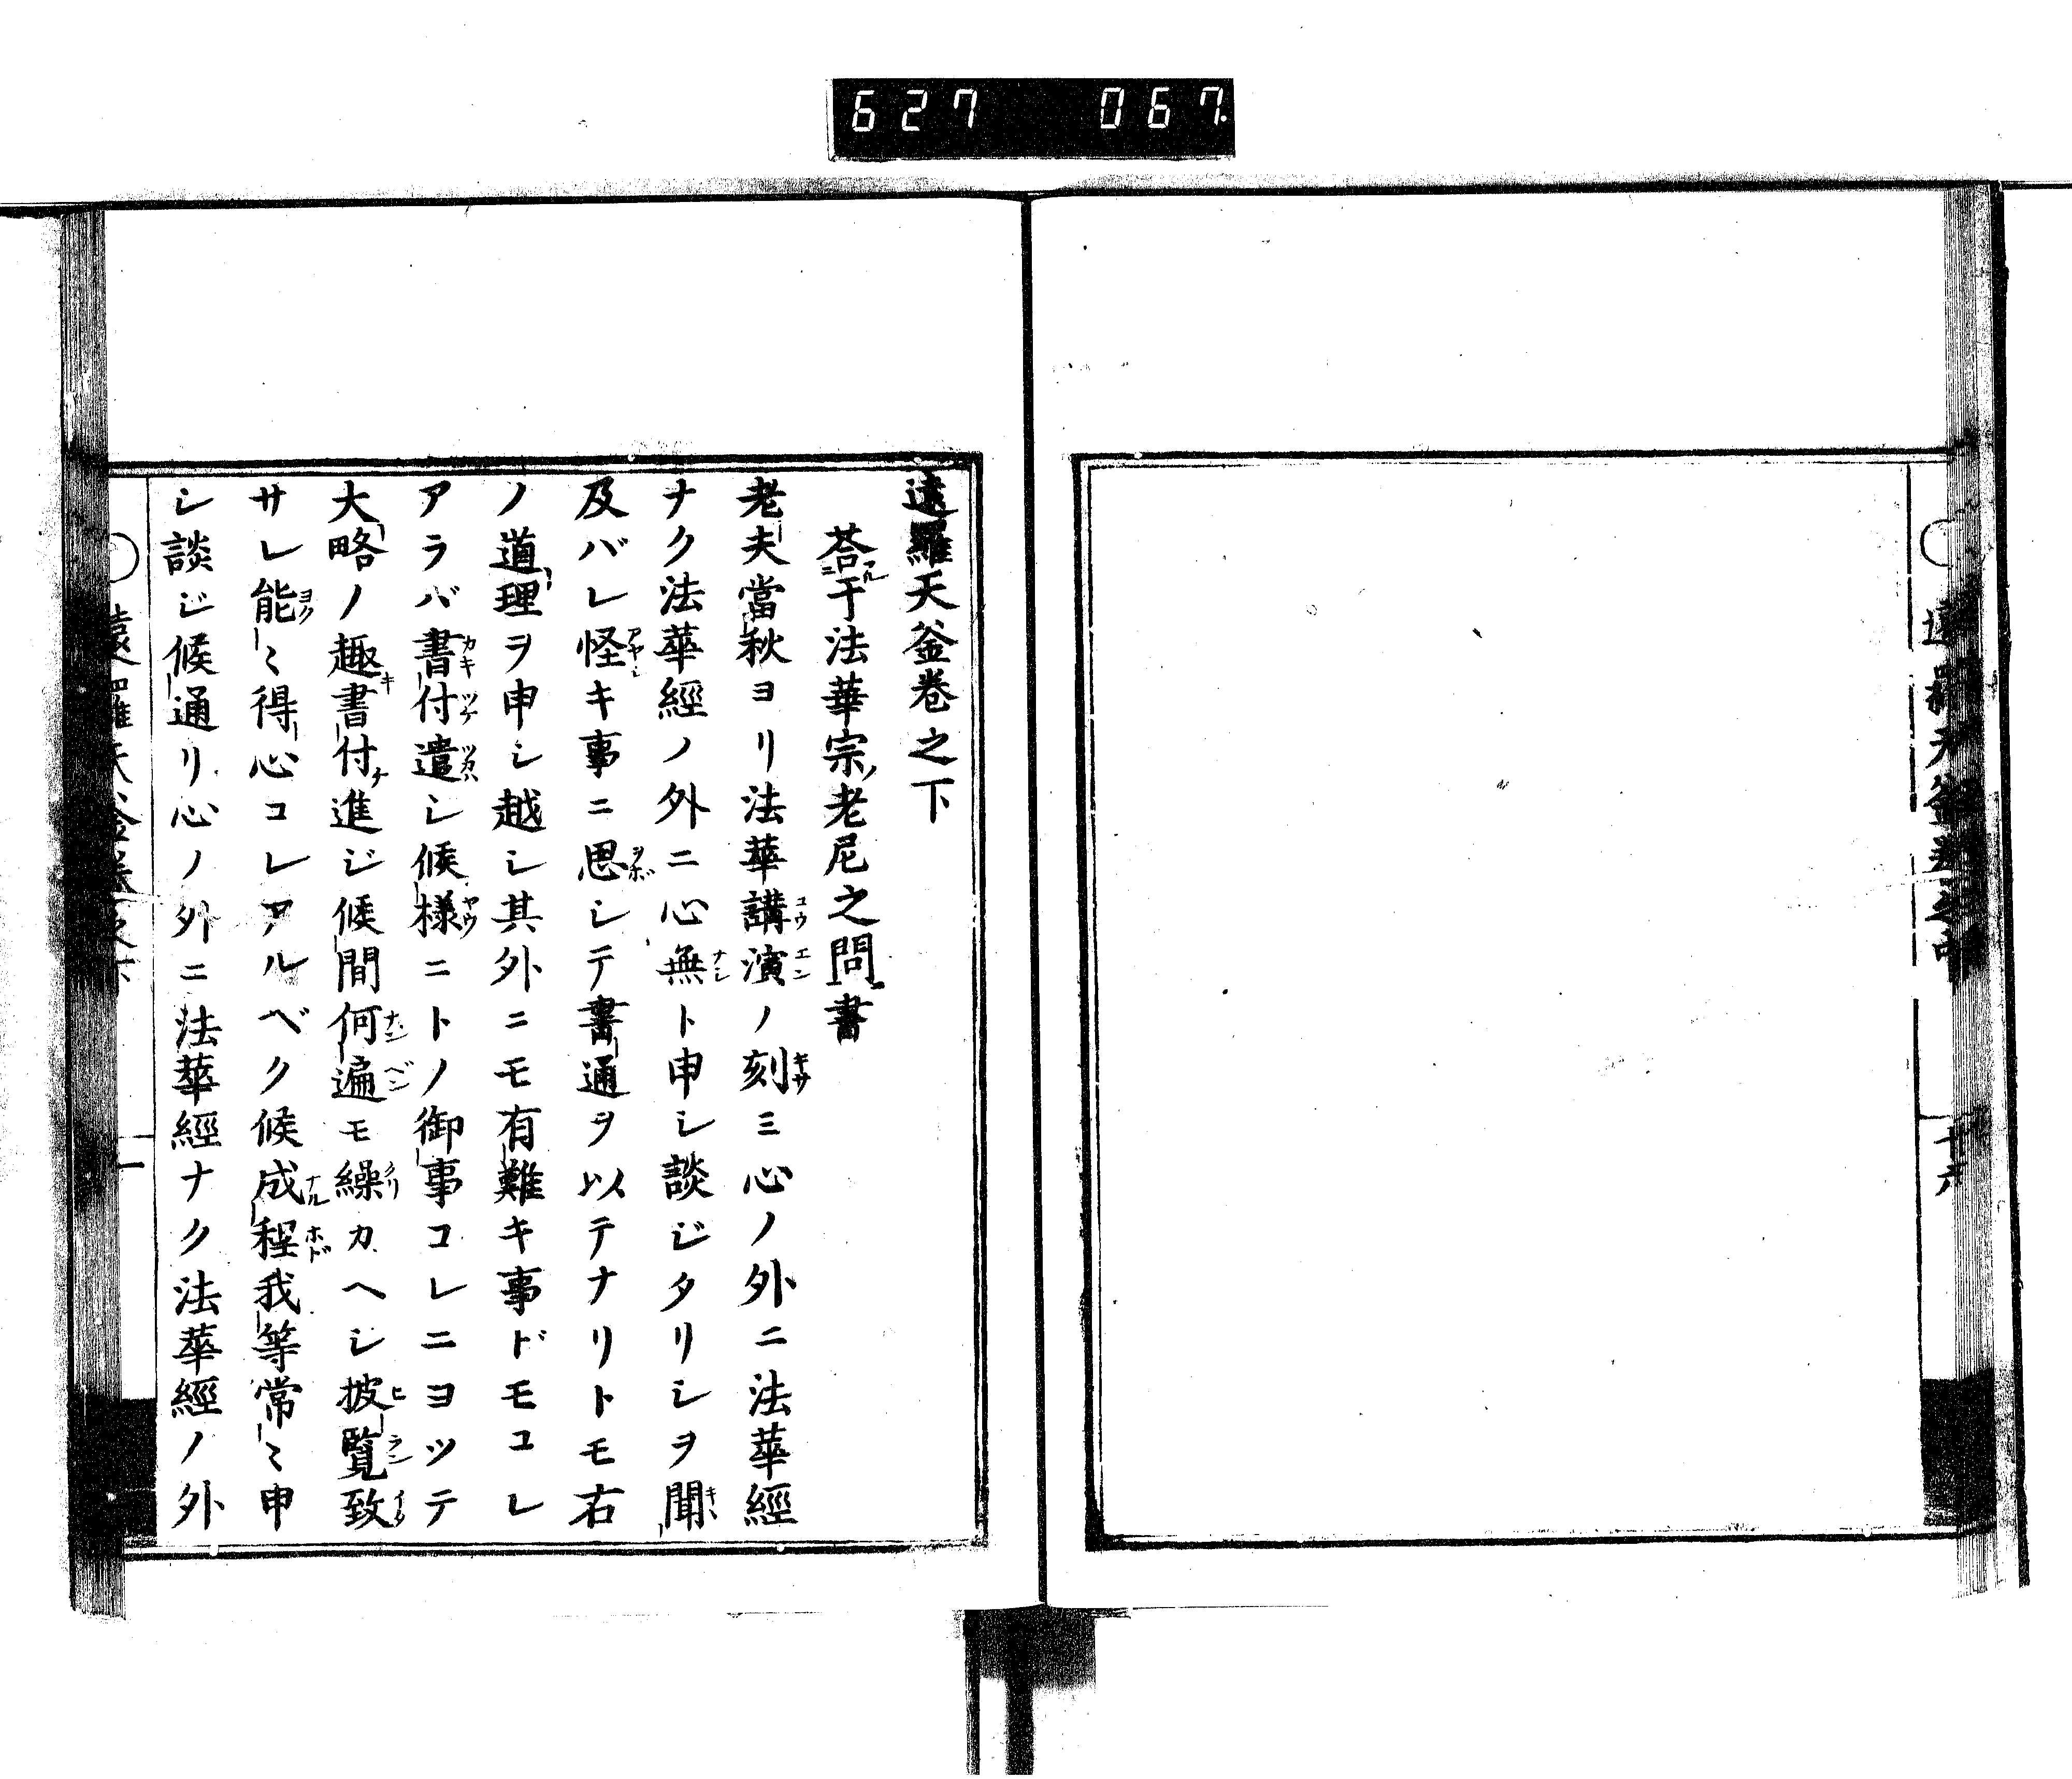 627 067
遠羅天釜卷之中
廿六
遠羅天釜卷之下
荅于法華宗老尼之問書
老夫當秋ヨリ法華講演ノ刻ミ心ノ外ニ法華經
ナク法華經ノ外ニ心無ト申シ談ジタリシヲ聞
及バレ怪キ事ニ思シテ書通ヲ以テナリトモ右
ノ道理ヲ申シ越シ其外ニモ有難キ事ドモコレ
アラバ書付遣シ候樣ニトノ御事コレニヨツテ
大略ノ趣書付進ジ候間何遍モ繰カヘシ披覽致
サレ能〻得心コレアルベク候成程我等常〻申
シ談ジ候通リ心ノ外ニ法華經ナク法華經ノ外
遠羅天釜卷之下
一